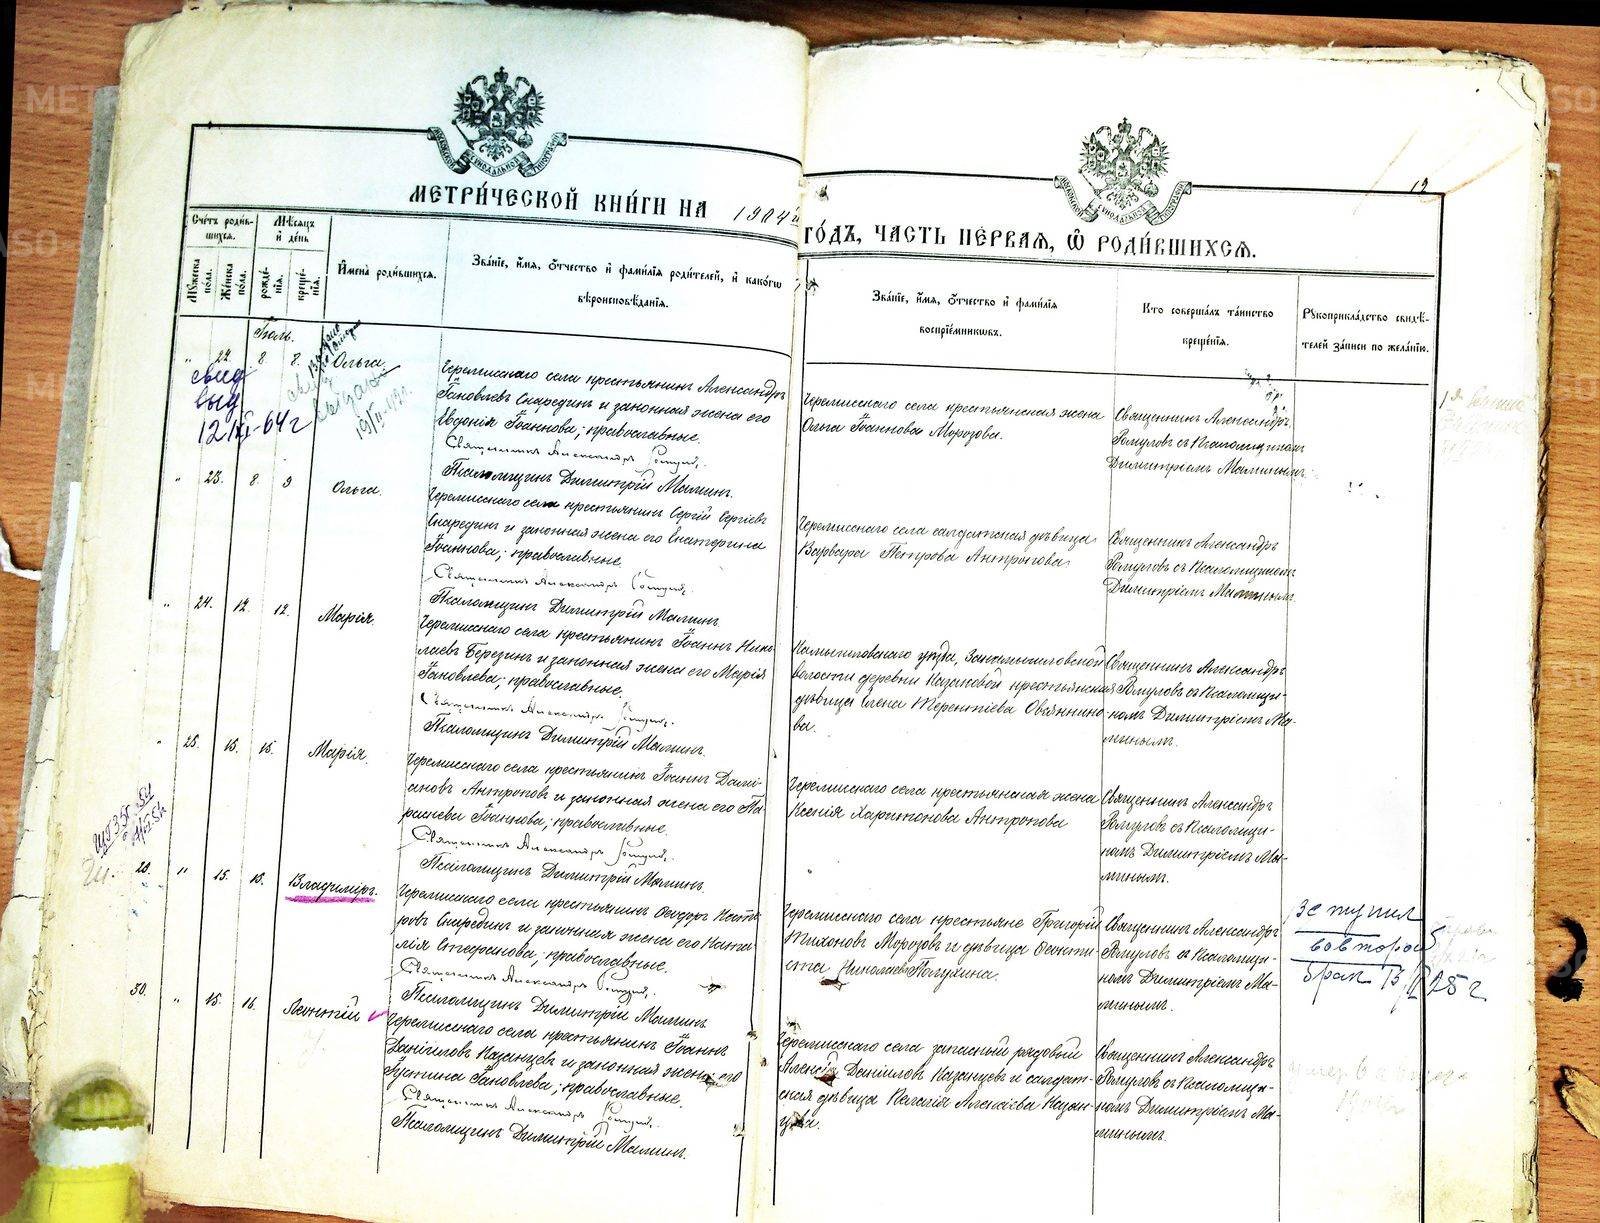 МЕТРИ́ЧЕСКОЙ КНИ́ГИ НА 1904й
ГО́ДЪ, ЧАСТЬ ПЕ́РВАѦ, Ѡ РОДИ́ВШИХСѦ.
12
Сче́тъ роди́в-
шихсѧ.
Мѣ́сѧцъ
и҆ де́нь
Мꙋ́жеска
по́ла.
Же́нска
по́ла.
рожде́-
нїѧ.
креще́-
нїѧ.
И҆мена̀ роди́вшихсѧ.
Зва́нїе, и҆́мѧ, ѻ҆́тчество и҆ фами́лїѧ роди́телей, и҆ како́гѡ
вѣроисповѣ́данїѧ.
Зва́нїе, и҆́мѧ, ѻ҆́тчество и҆ фами́лїѧ
воспрїе́мникѡвъ.
Кто̀ соверша́лъ та́инство
креще́нїѧ.
Рꙋкоприкла́дство свидѣ́-
телей за́писи по жела́нїю.
Іюль.
" 22. 8 8. Ольга.
свид
выд
12/XI-64г
19/IV-49г.
Черемисскаго села крестьянинъ Александръ
Іаковлевъ Снаредин и законная жена его
Евдокія Іоаннова; православные.
Священникъ Александръ Ромулов.
Псаломщикъ Димитрій Маминъ.
Черемисскаго села крестьянская жена
Ольга Іоаннова Морозова.
Священникъ Александръ
Ромуловъ съ Псаломщикомъ
Димитріемъ Маминымъ.
" 23. 8. 9 Ольга.
Черемисскаго села крестьянинъ Сергій Сергіевъ
Снаредин и законная жена его Екатерина
Іоаннова; православные.
Священникъ Александръ Ромулов.
Псаломщикъ Димитрій Маминъ.
Черемисскаго села салдатская дѣвица
Варвара Петрова Антропова
Священникъ Александръ
Ромуловъ съ Псаломщикомъ
Димитріемъ Маминымъ.
" 24. 12. 12. Марія.
Черемисскаго села крестьянинъ Іоаннъ Нико-
лаевъ Березин и законная жена его Марія
Іаковлева; православные.
Священникъ Александръ Ромулов.
Псаломщикъ Димитрій Маминъ.
Камышловскаго уѣзда, Закамышловской
волости деревни Казаковой крестьянская
дѣвица Елена Терентіева Овчинnико-
ва.
Священникъ Александръ
Ромуловъ съ Псаломщи-
комъ Димитріемъ Ма-
минымъ.
" 25. 15. 15. Марія.
Черемисскаго села крестьянинъ Іоаннъ Дамі-
ановъ Антропов и законная жена его Па-
раскева Іоаннова; православные.
Священникъ Александръ Ромулов.
Псаломщикъ Димитрій Маминъ.
Черемисскаго села крестьянская жена
Ксенія Харитонова Антропова
Священникъ Александръ
Ромуловъ съ Псаломщи-
комъ Димитріемъ Ма-
минымъ.
" 15. 15. Владиміръ.
Черемисскаго села крестьянинъ Ѳеодоръ
Снаредин и законная жена его Ната-
лія Стефанова; православные.
Священникъ Александръ Ромулов.
Псаломщикъ Димитрій Маминъ.
Черемисскаго села крестьяне Григорій
Тихоновъ Морозовъ и дѣвица Ѳеокти-
ста Николаева
Священникъ Александръ
Ромуловъ съ Псаломщи-
комъ Димитріемъ Ма-
минымъ.
вступил
во второй
брак 25г
30. " 15. 16. Леонтій
Черемисскаго села крестьянинъ Іоаннъ
Даніиловъ Казанцевъ и законная жена его
Іустина Іаковлева; православные.
Священникъ Александръ Ромулов.
Псаломщикъ Димитрій Маминъ.
Черемисскаго села запасный рядовый
Алексѣй Даніиловъ Казанцевъ и салдат-
ская дѣвица Пелагія Алексіева Казан-
цева.
Священникъ Александръ
Ромуловъ съ Псаломщи-
комъ Димитріемъ Ма-
минымъ.